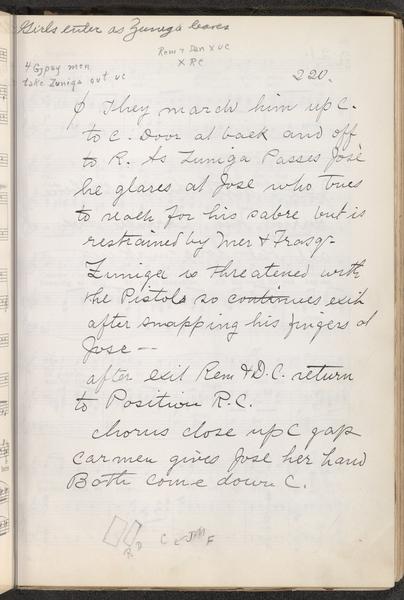 Girls enter as Zuniga leaves
Rem + Dan X UC
X RC
4 Gypsy men
take Zuniga out UC
220.
φ They march him up C.
to C. Door at back and off
to R. As Zuniga Passes José
he glares at Jose who tries
to reach for his sabre but is
restrained by Mer & Frasq-
Zuniga is threatened with
the Pistols so continues exit
after snapping his fingers at
Jose --
after exit Rem & D.C. return
to Position R.C.
chorus close up C gap
Carmen gives Jose her hand
Both come down C.
R D C J M F